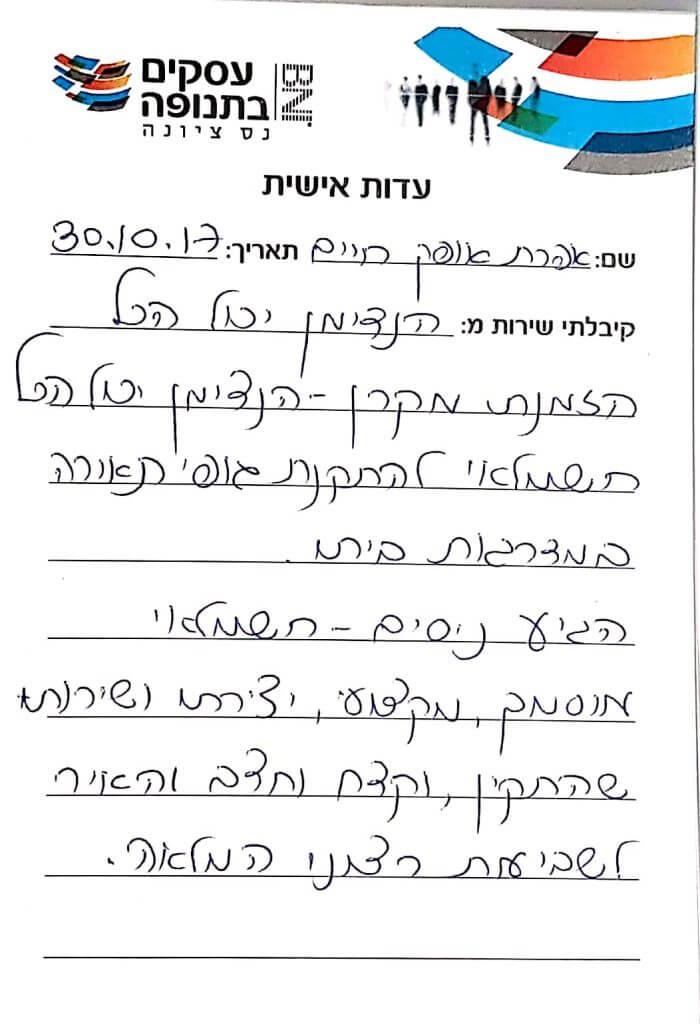 עסקים
בתנופה
BNI
נס ציונה
עדות אישית
שם: אפרת אופק חיים תאריך: 30.10.17
קיבלתי שירות מ: הנדימן יכול הכל
הזמנתי מקרן - הנדימן יכול הכל
חשמלאי להתקנת גופי תאורה
במדרגות ביתי.
הגיע ניסים - חשמלאי
מוסמך, מקצועי, יצירתי ושירותי
שהתקין, וקדח וחצב והאיר
לשביעות רצוני המלאה.